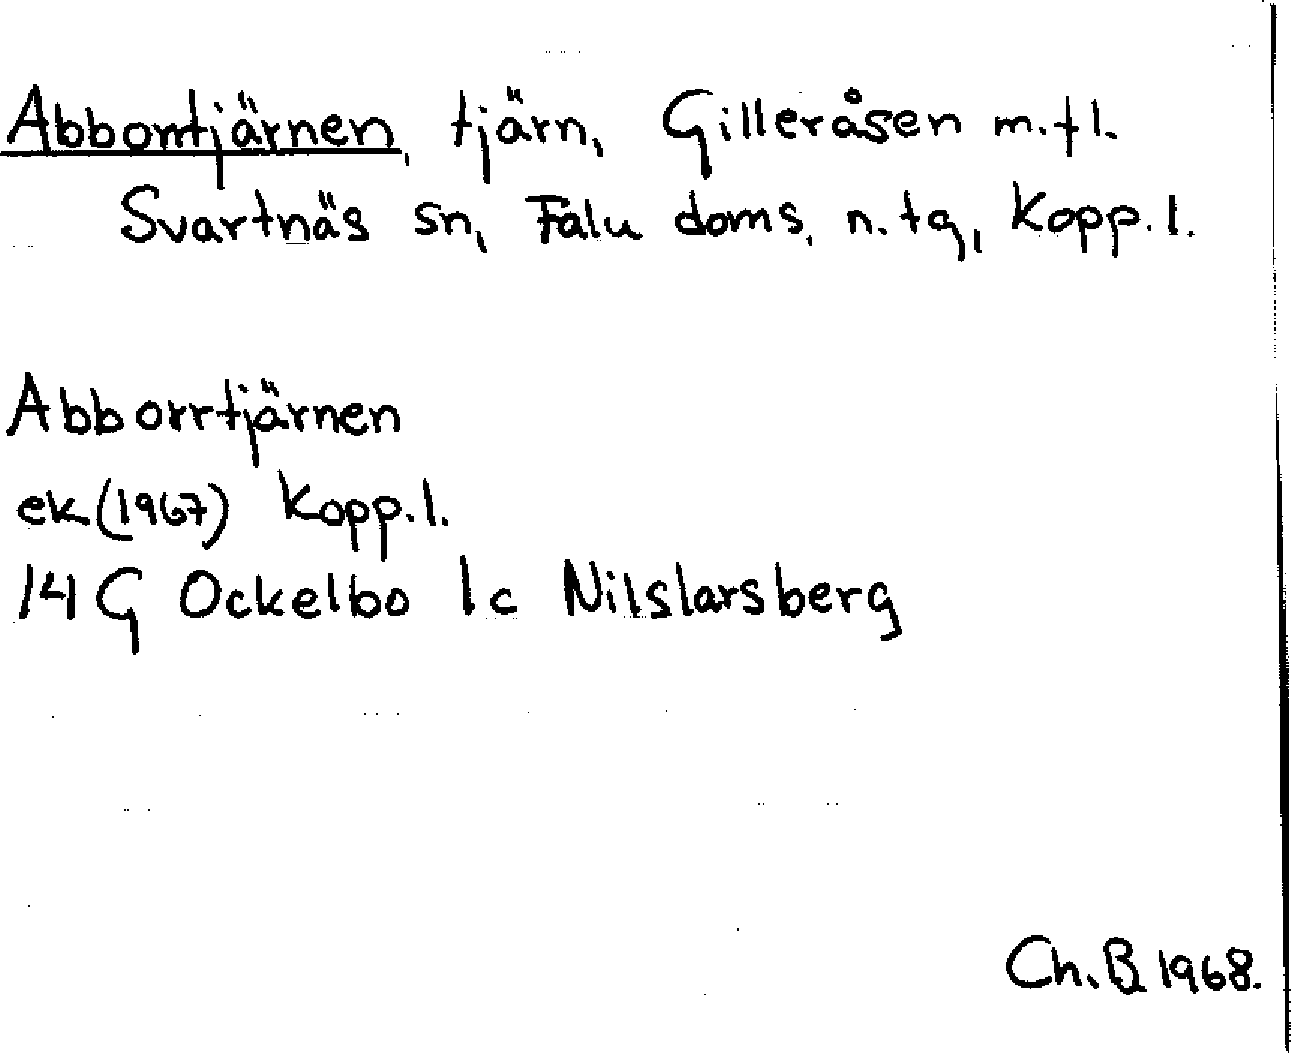 Abborrtjärnen, tjärn, Gilleråsen m.fl.
Svartnäs sn, Falu doms. n. tg, Kopp. l.
Abborrtjärnen
ek (1967) Kopp. l.
14 G Ockelbo 1c Nilslarsberg
Ch. B 1968.